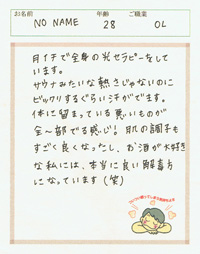 お名前 年齢 ご職業
NO NAME 28 OL
月イチで全身の光セラピーをして
います。
サウナみたいな熱さじゃないのに
ビックリするぐらい汗がでます。
体に留まっている悪いものが
全〜部でる感じ！肌の調子も
すごく良くなったし、お酒が大好き
な私には、本当に良い解毒方
になっています(笑)